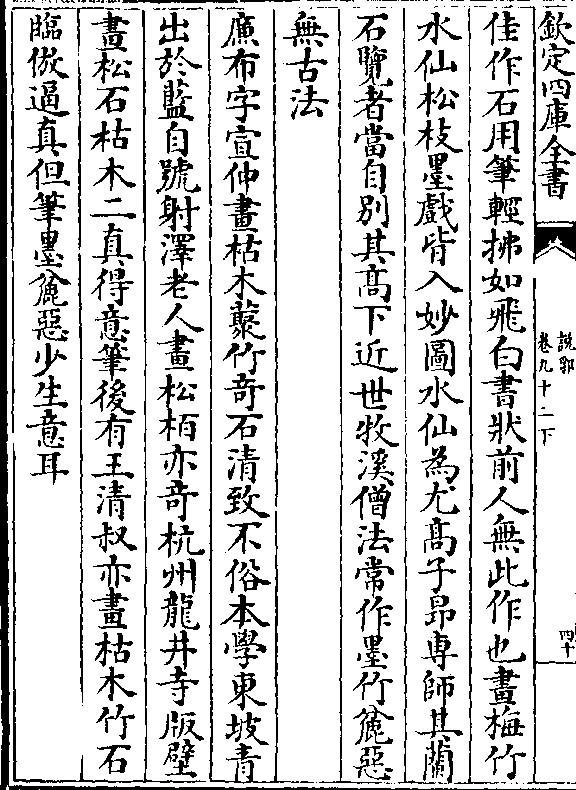 欽定四庫全書
說郛
卷九十二下
四十
佳作石用筆輕拂如飛白書狀前人無此作也畫梅竹
水仙松枝墨戲皆入妙圖水仙為尤高子昂専師其蘭
石覽者當自別其高下近世牧溪僧法常作墨竹麄惡
無古法
廉布字宣仲畫枯木藂竹竒石清致不俗本學東坡青
出於藍自號射澤老人畫松栢亦竒杭州龍井寺版壁
畫松石枯木二真得意筆後有王清叔亦畫枯木竹石
臨倣逼真但筆墨麄惡少生意耳